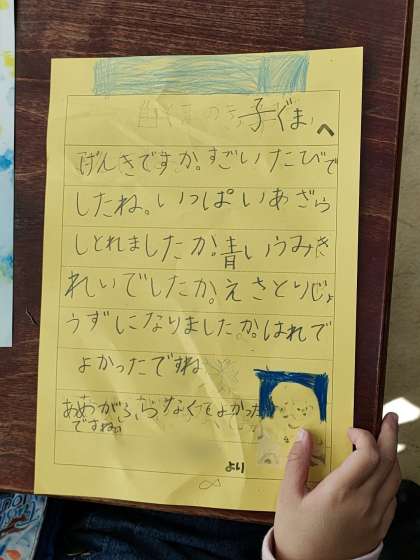 子ぐまへ
げんきですか。すごいたびで
したね。いっぱいあざら
しとれましたか。青いうみき
れいでしたか。えさとりじょ
うずになりましたか。はれで
よかったですね
あめがふらなくてよかった
ですね。
より